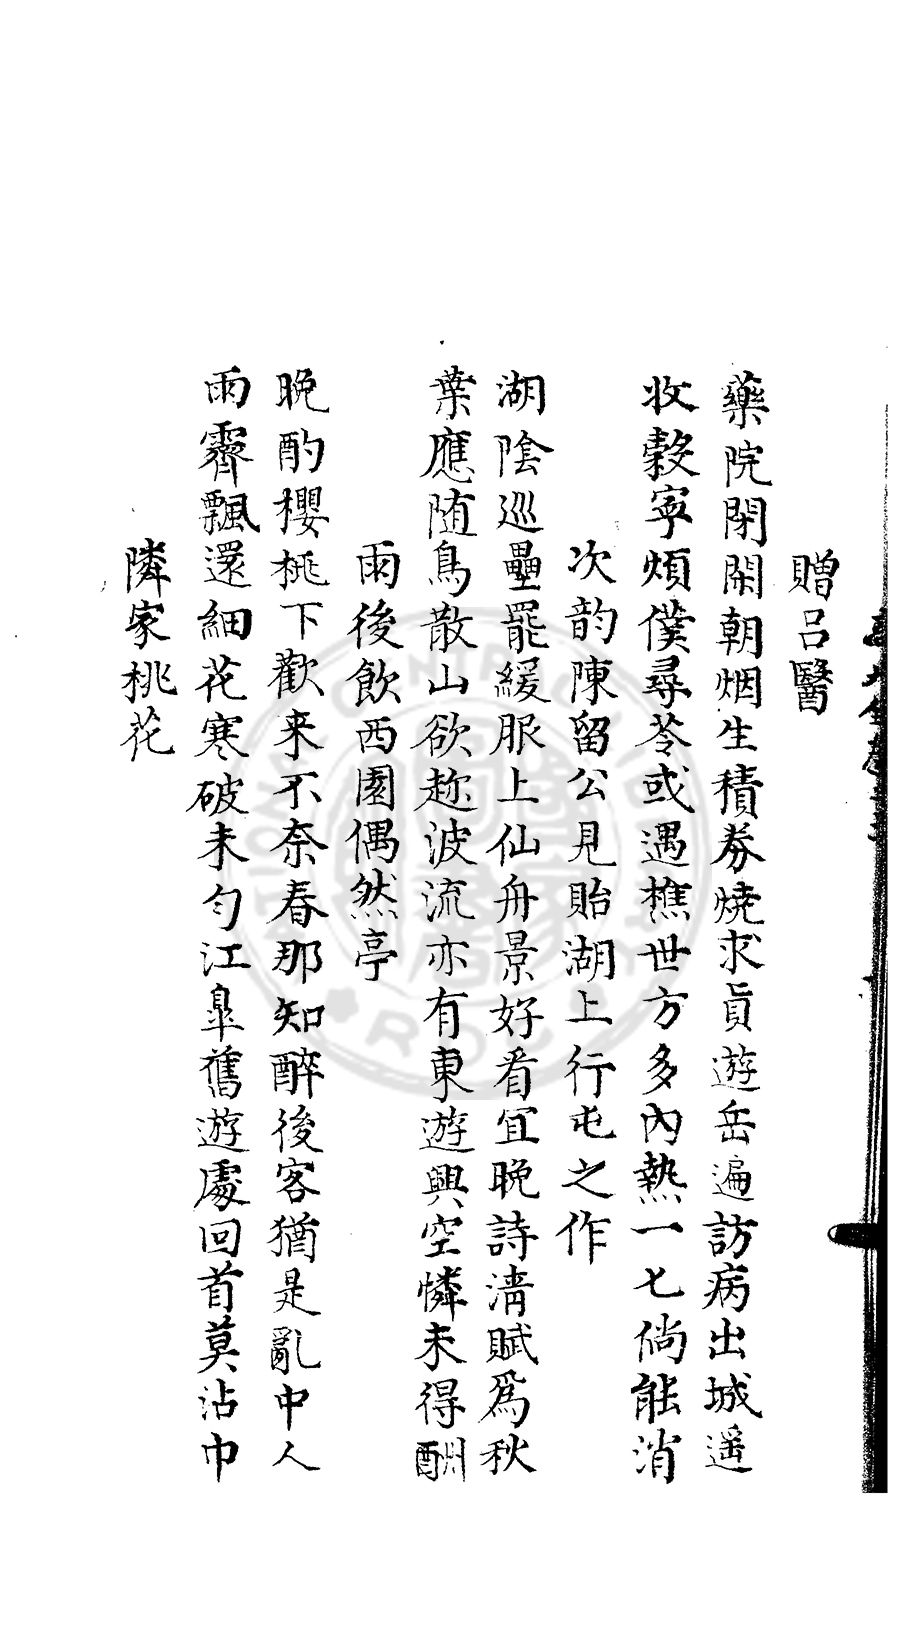 贈呂醫
藥院閉閑朝烟生積券燒求眞遊岳遍訪病出城遥
收穀寧煩僕尋苓或遇樵世方多內熱一七倘能消
次韵陳留公見貽湖上行屯之作
湖陰巡壘罷緩服上仙舟景好看宜晚詩淸賦爲秋
葉應随鳥散山欲趂波流亦有東遊興空憐未得酬
雨後飮西園偶然亭
晚酌櫻桃下歡来不奈春那知醉後客猶是亂中人
雨霽飄還細花寒破未勻江臯舊遊處回首莫沾巾
隣家桃花